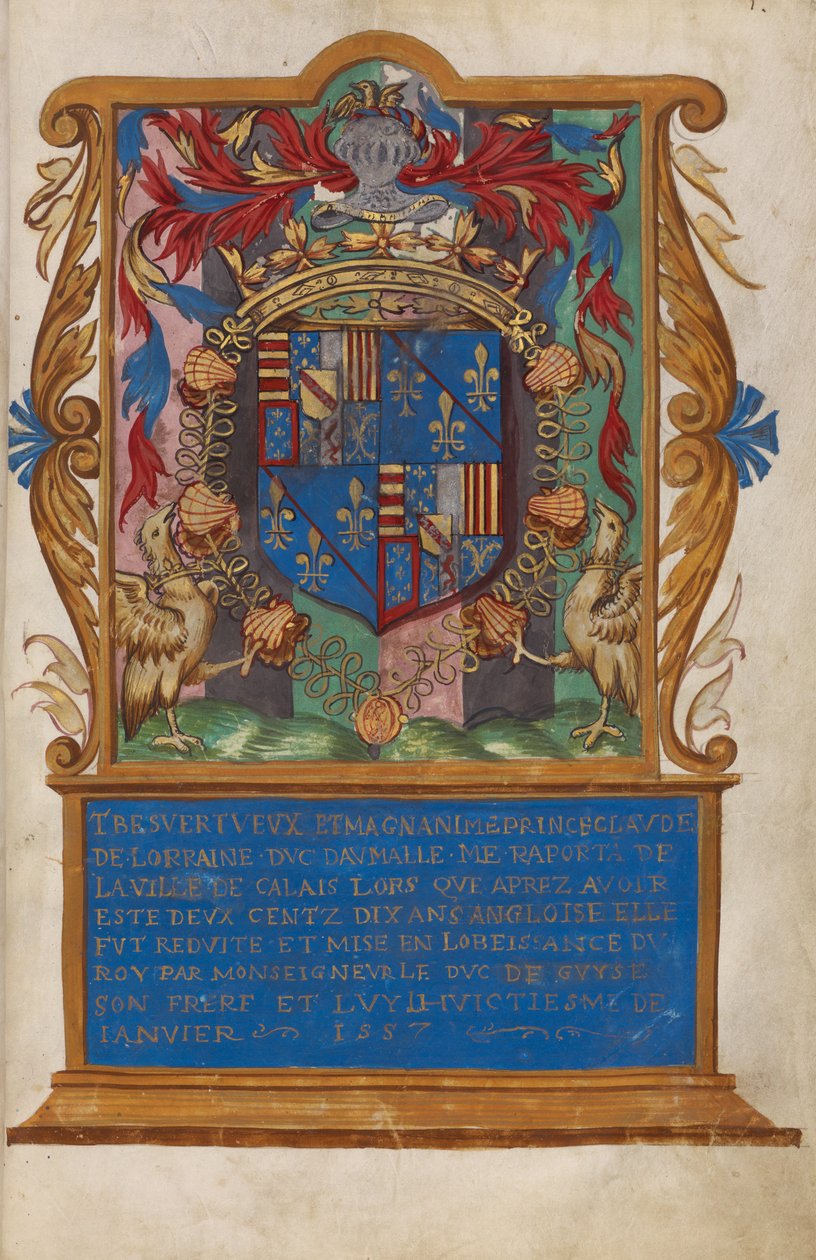 TRESVERTVEUX ET MAGNANIME PRINCE CLAVDE
DE · LORRAINE · DVC DAVMALLE · ME RAPORTA DE
LA VILLE DE CALAIS LORS QVE APREZ AVOIR
ESTE DEVX CENTZ DIX ANS ANGLOISE ELLE
FVT REDVITE · ET · MISE EN LOBEISSANCE DV
ROY PAR MONSEIGNEVR LE DVC DE GVYSE
SON FRERE ET LVY LHVICTIESME DE
IANVIER 1557